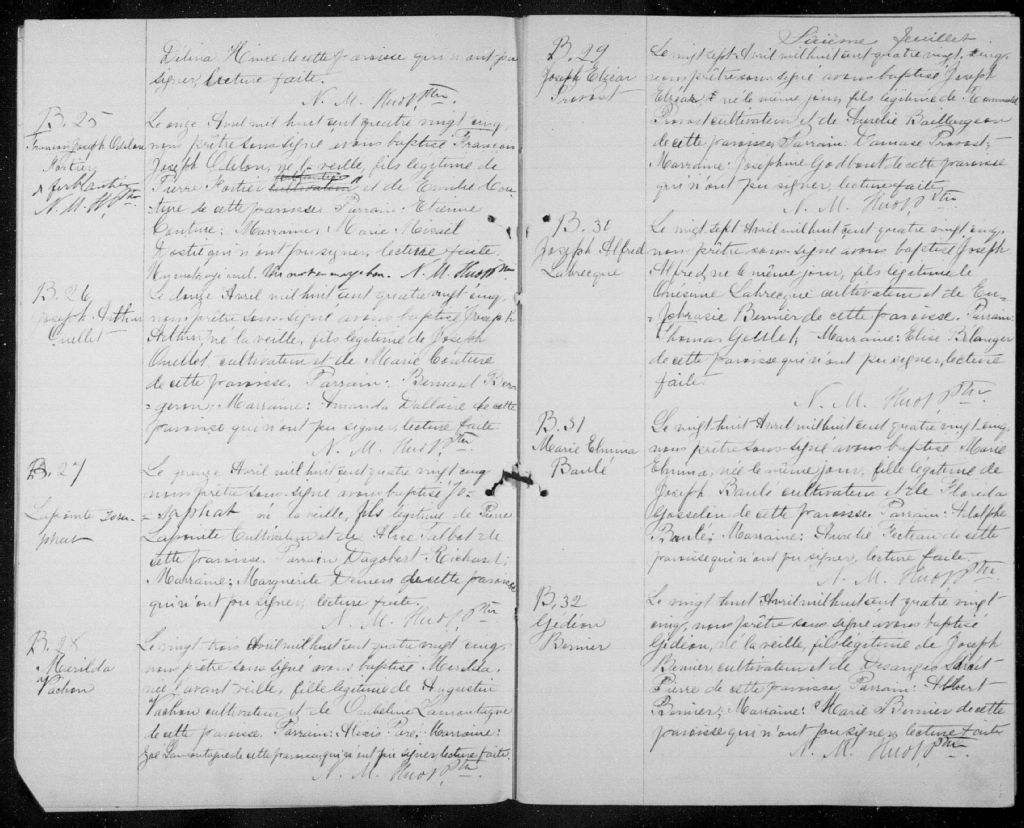 Délina Rince de cette paroisse qui n'ont pu
signer, lecture faite.
N. M. Huot Ptre.
B. 25
Joseph Odilon
Fortier
N. M. H. Ptre
Le onze Avril mil huit cent quatre vingt cinq,
nous prêtre sous-signé avons baptisé François
Joseph Odilon, né la veille, fils légitime de
Pierre Fortier et de Emilie Cou-
ture de cette paroisse. Parrain: Etienne
Couture; Marraine: Marie Misaël
qui n'ont pu signer, lecture faite.
N. M. Huot Ptre
B. 26
Joseph Arthur
Ouellet
Le douze Avril mil huit cent quatre vingt cinq,
nous prêtre sous-signé avons baptisé Joseph
Arthur, né la veille, fils légitime de Joseph
Ouellet, cultivateur et de Marie Couture
de cette paroisse. Parrain: Bernard Ber-
=geron; Marraine: Amanda Dallaire de cette
paroisse qui n'ont pu signer, lecture faite
N. M. Huot Ptre.
B. 27
Lapointe Josa-
phat
Le quinze Avril mil huit cent quatre vingt cinq
nous prêtre sous-signé avons baptisé Jo-
=saphat né la veille, fils légitime de Pierre
Lapointe Cultivateur et de Alice Talbot de
cette paroisse. Parrain Dagobert Richard;
Marraine: Marguerite Demers de cette paroisse
qui n'ont pu signer, lecture faite.
N. M. Huot, Ptre
B. 28
Merilda
Vachon
Le vingt trois Avril mil huit cent quatre vingt cinq
nous prêtre sous-signé avons baptisé Merilda,
née l'avant veille, fille légitime de Augustin
Vachon cultivateur et de Ombeline Lamontagne
de cette paroisse. Parrain: Alexis Paré; Marraine:
Zoé Lamontagne de cette paroisse qui n'ont pu signer, lecture faite.
N. M. Huot, Ptre.
Sixième feuillet
B. 29
Joseph Elzéar
Provost
Le vingt sept Avril mil huit cent quatre vingt, cinq,
nous prêtre sous signé avons baptisé Joseph
Elzéar, né le même jour, fils légitime de
Provost cultivateur et de Aurélie Baillargeon
de cette paroisse. Parrain: Damase Provost;
Marraine: Joséphine Godbout de cette paroisse
qui n'ont pu signer, lecture faite
N. M. Huot, Ptre
B. 30
Joseph Alfred
Labrecque
Le vingt sept Avril mil huit cent quatre vingt, cinq,
nous prêtre sous-signé avons baptisé Joseph
Alfred, né le même jour, fils légitime de
Onésime Labrecque cultivateur et de Eu-
=phrasie Bernier de cette paroisse. Parrain:
Thomas Goblet; Marraine: Elise Bélanger
de cette paroisse qui n'ont pu signer, lecture
faite.
N. M. Huot, Ptre
B. 31
Marie Elmina
Baulé
Le vingt huit Avril mil huit cent quatre vingt cinq,
nous prêtre sous-signé avons baptisé Marie
Elmina, née le même jour, fille légitime de
Joseph Baulé cultivateur et de Florida
Gosselin de cette paroisse. Parrain: Adolphe
Baulé; Marraine: Aurélie Fecteau de cette
paroisse qui n'ont pu signer, lecture faite
N. M. Huot, Ptre.
B. 32
Gédéon
Bernier
Le vingt huit Avril mil huit cent quatre vingt
cinq, nous prêtre sous-signé avons baptisé
Gédéon, né la veille, fils légitime de Joseph
Bernier cultivateur et de Desanges Saint
Pierre de cette paroisse, Parrain: Albert
Bernier; Marraine: Marie Bernier de cette
paroisse qui n'ont pu signer, lecture faite
N. M. Huot, Ptre.